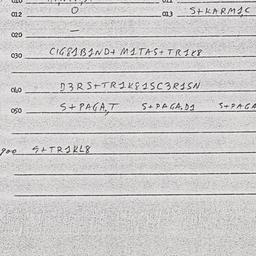 012 O 013 S+KARM1,C
020 -
030 C1G81B1ND+ M1TAS+TR1K8
040 D3RS+TR1K81SC3R1SN
050 S+PAGA,T S+PAGA,D1 S+PAGA
900 S+TR1KL8